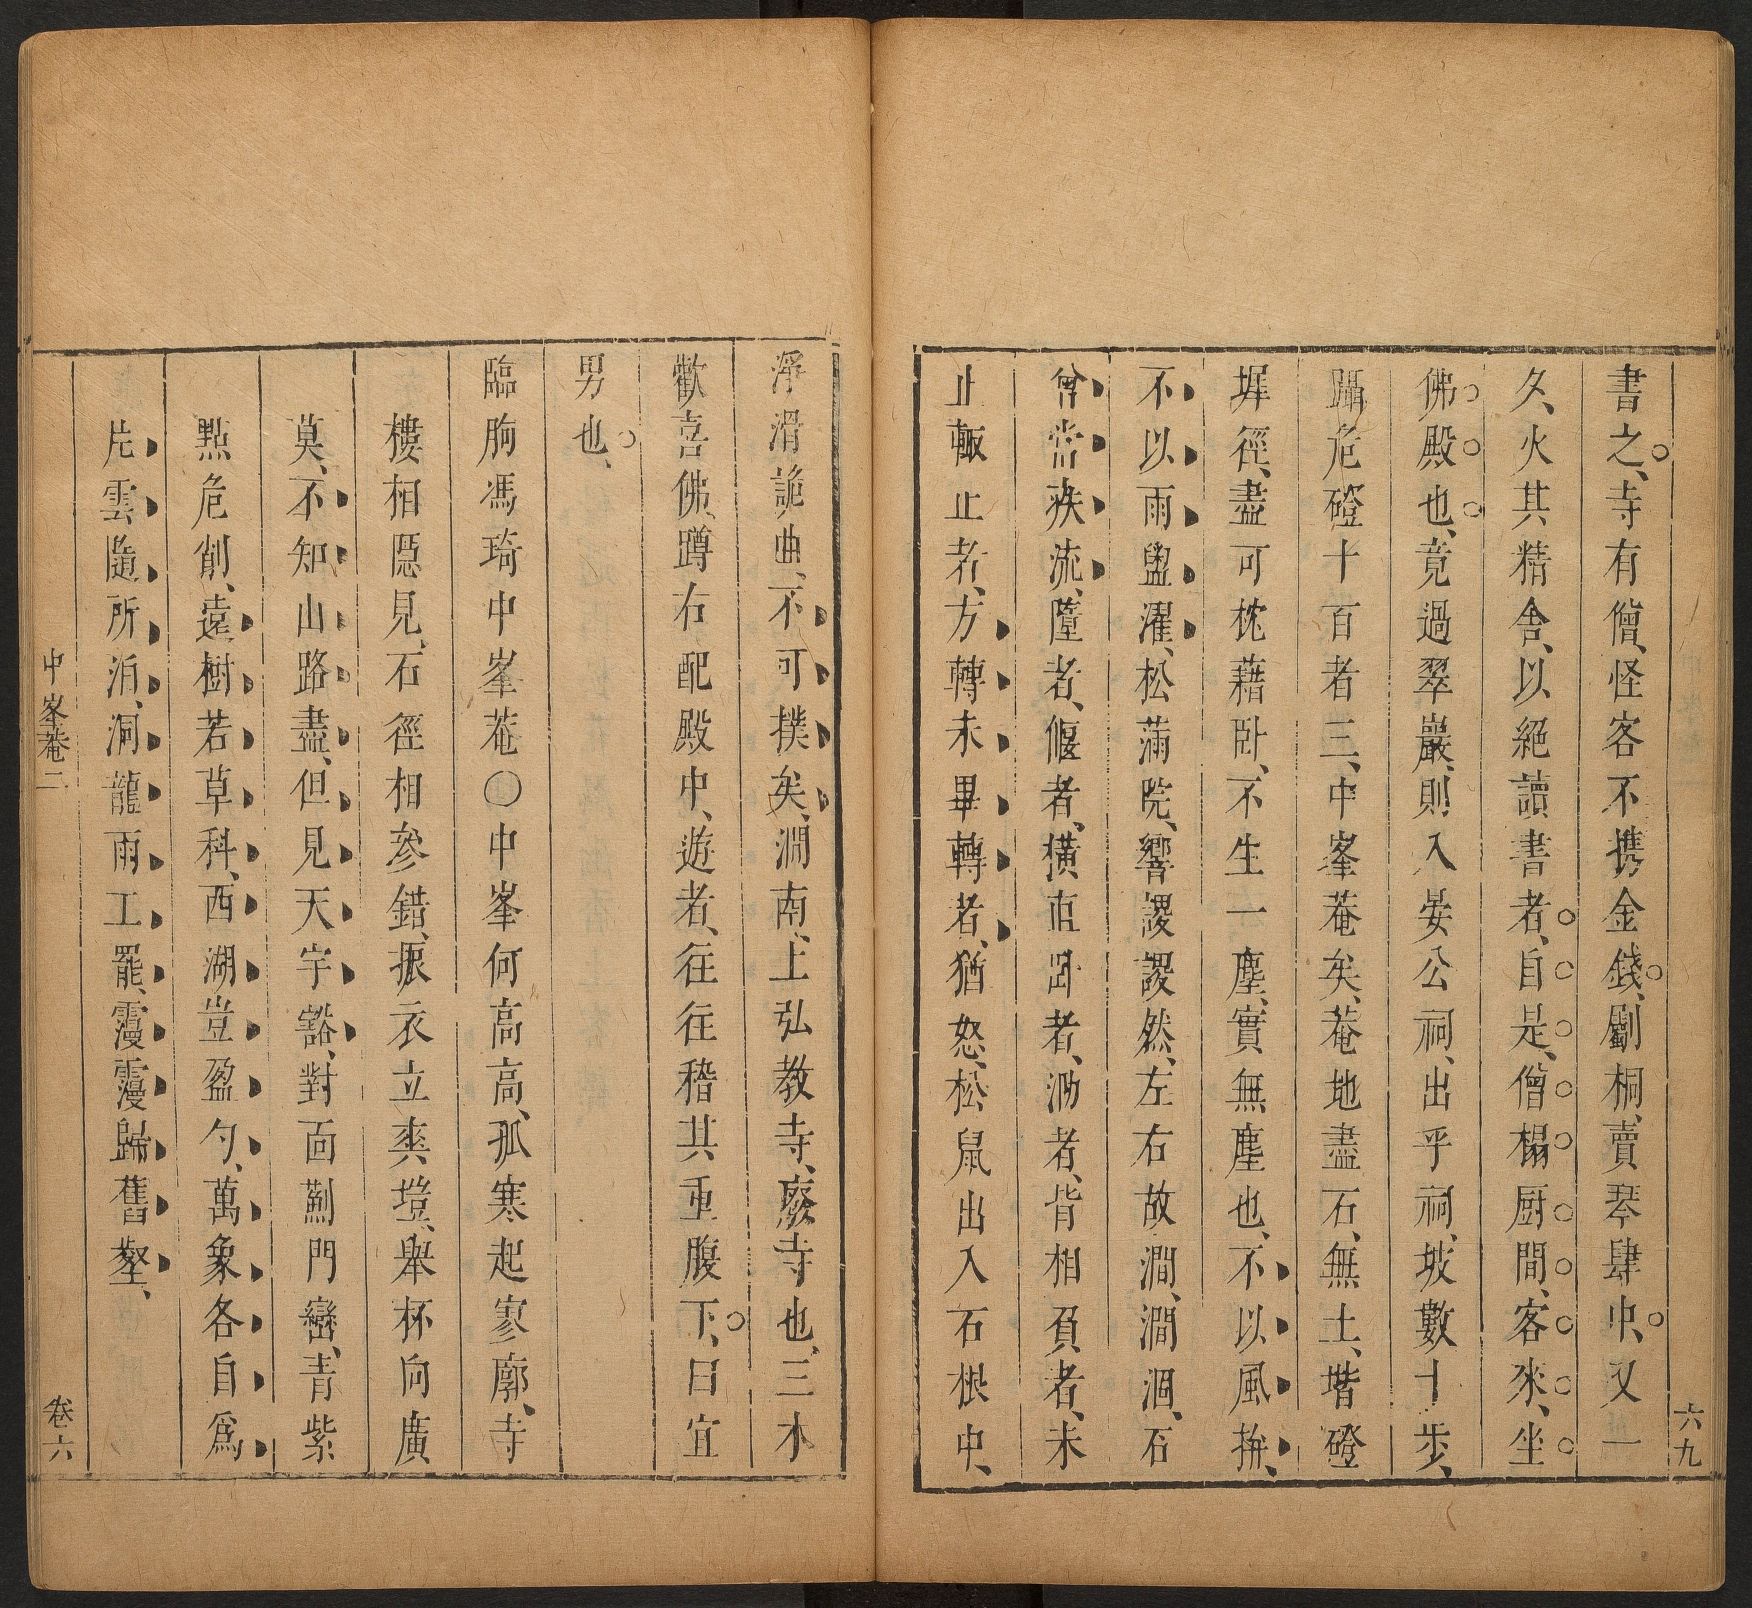 六九
書之、寺有僧、怪客不携金錢、劚桐、賣琴肆中、又一
久、火其精舍、以絕讀書者、自是、僧榻厨間、客來、坐
佛殿也、竟過翠巖、則入晏公祠、出乎祠、坡數十步、
躡危磴十百者三、中峯菴矣、菴地盡石、無土、堦磴
墀徑、盡可枕藉臥、不生一塵、實無塵也、不以風拚、
不以雨盥濯、松滿院、響謖謖然、左右故澗、澗涸、石
曾當疾流、墮者、偃者、橫亘卧者、泐者、背相負者、未
止輙止者、方轉未畢轉者、猶怒、松鼠出入石根中、
淨滑詭曲、不可撲矣、澗南、上弘教寺、廢寺也、三木
歡喜佛、蹲右配殿中、遊者、往往稽其重腹下、曰宜
男也、
臨朐馮琦中峯菴○中峯何高高、孤寒起寥廓、寺
樓相隱見、石徑相參錯、振衣立爽塏、舉杯向廣
莫、不知山路盡、但見天宇豁、對面薊門巒、青紫
點危削、遠樹若草科、西湖豈盈勺、萬象各自爲
片雲隨所泊、洞龍雨工罷、歸舊壑、
中峯菴二
卷六